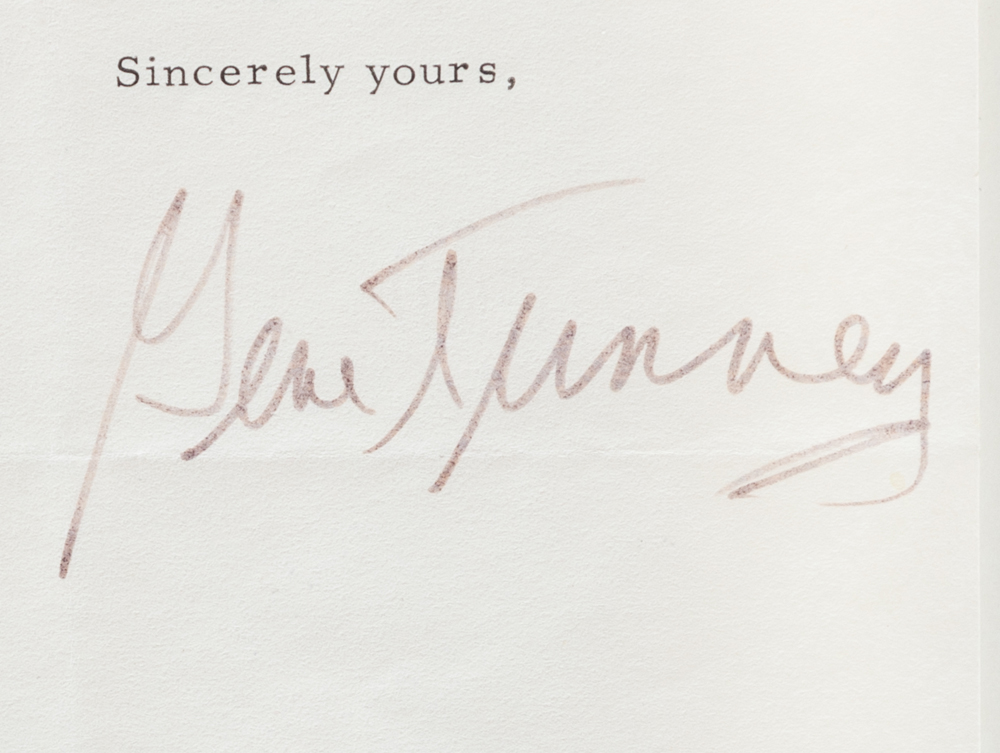 Sincerely yours,
Gene Tunney